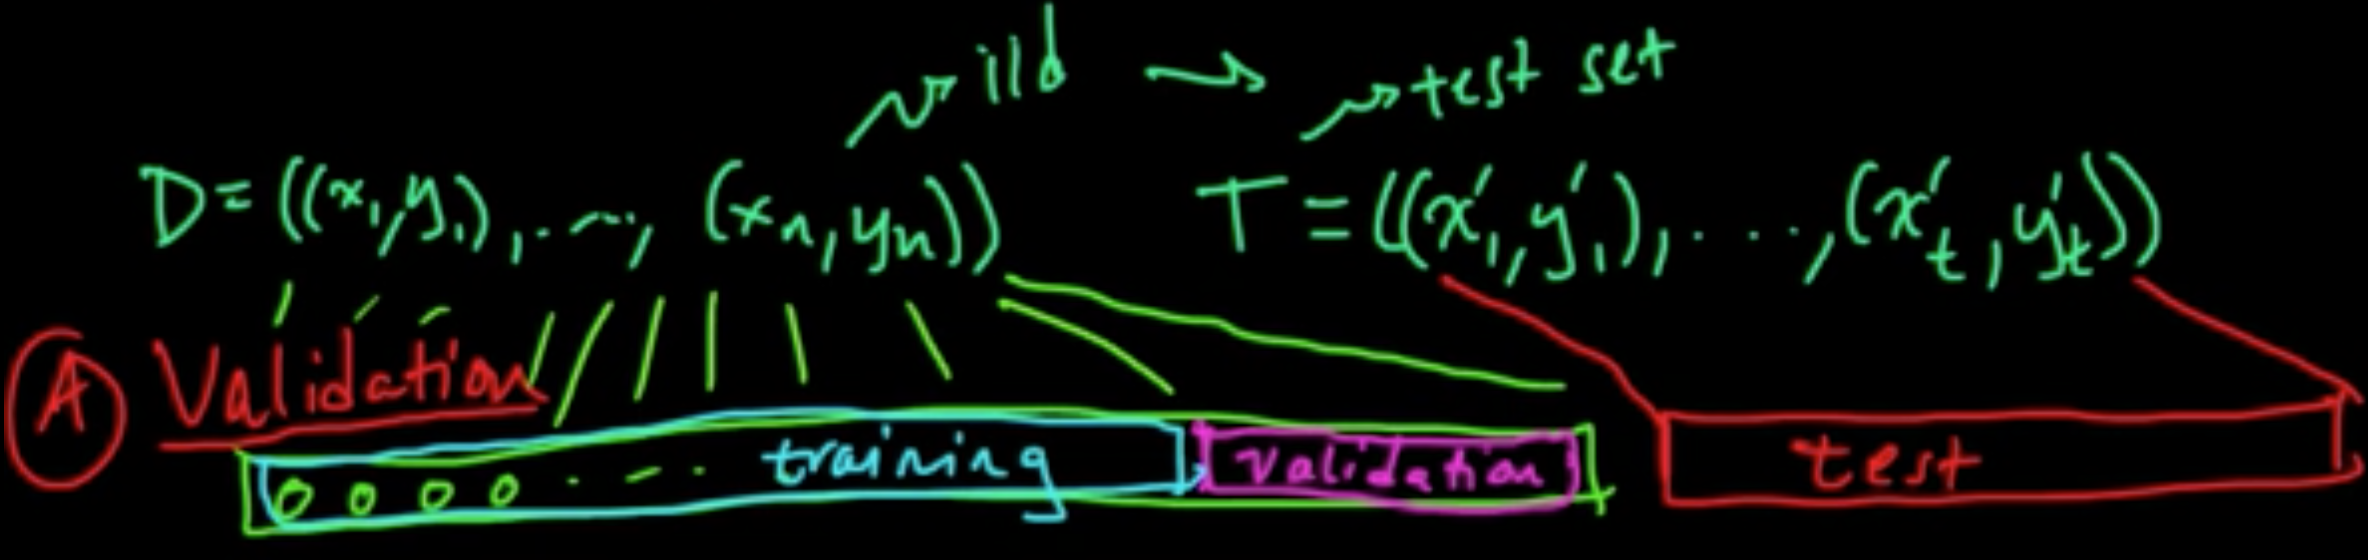 iid → → test set
D = ((x₁,y₁),...,(xₙ,yₙ)) T = ((x'₁,y'₁),...,(x'ₜ,y'ₜ))
A Validation
0 0 0 0 . - - . training validation test